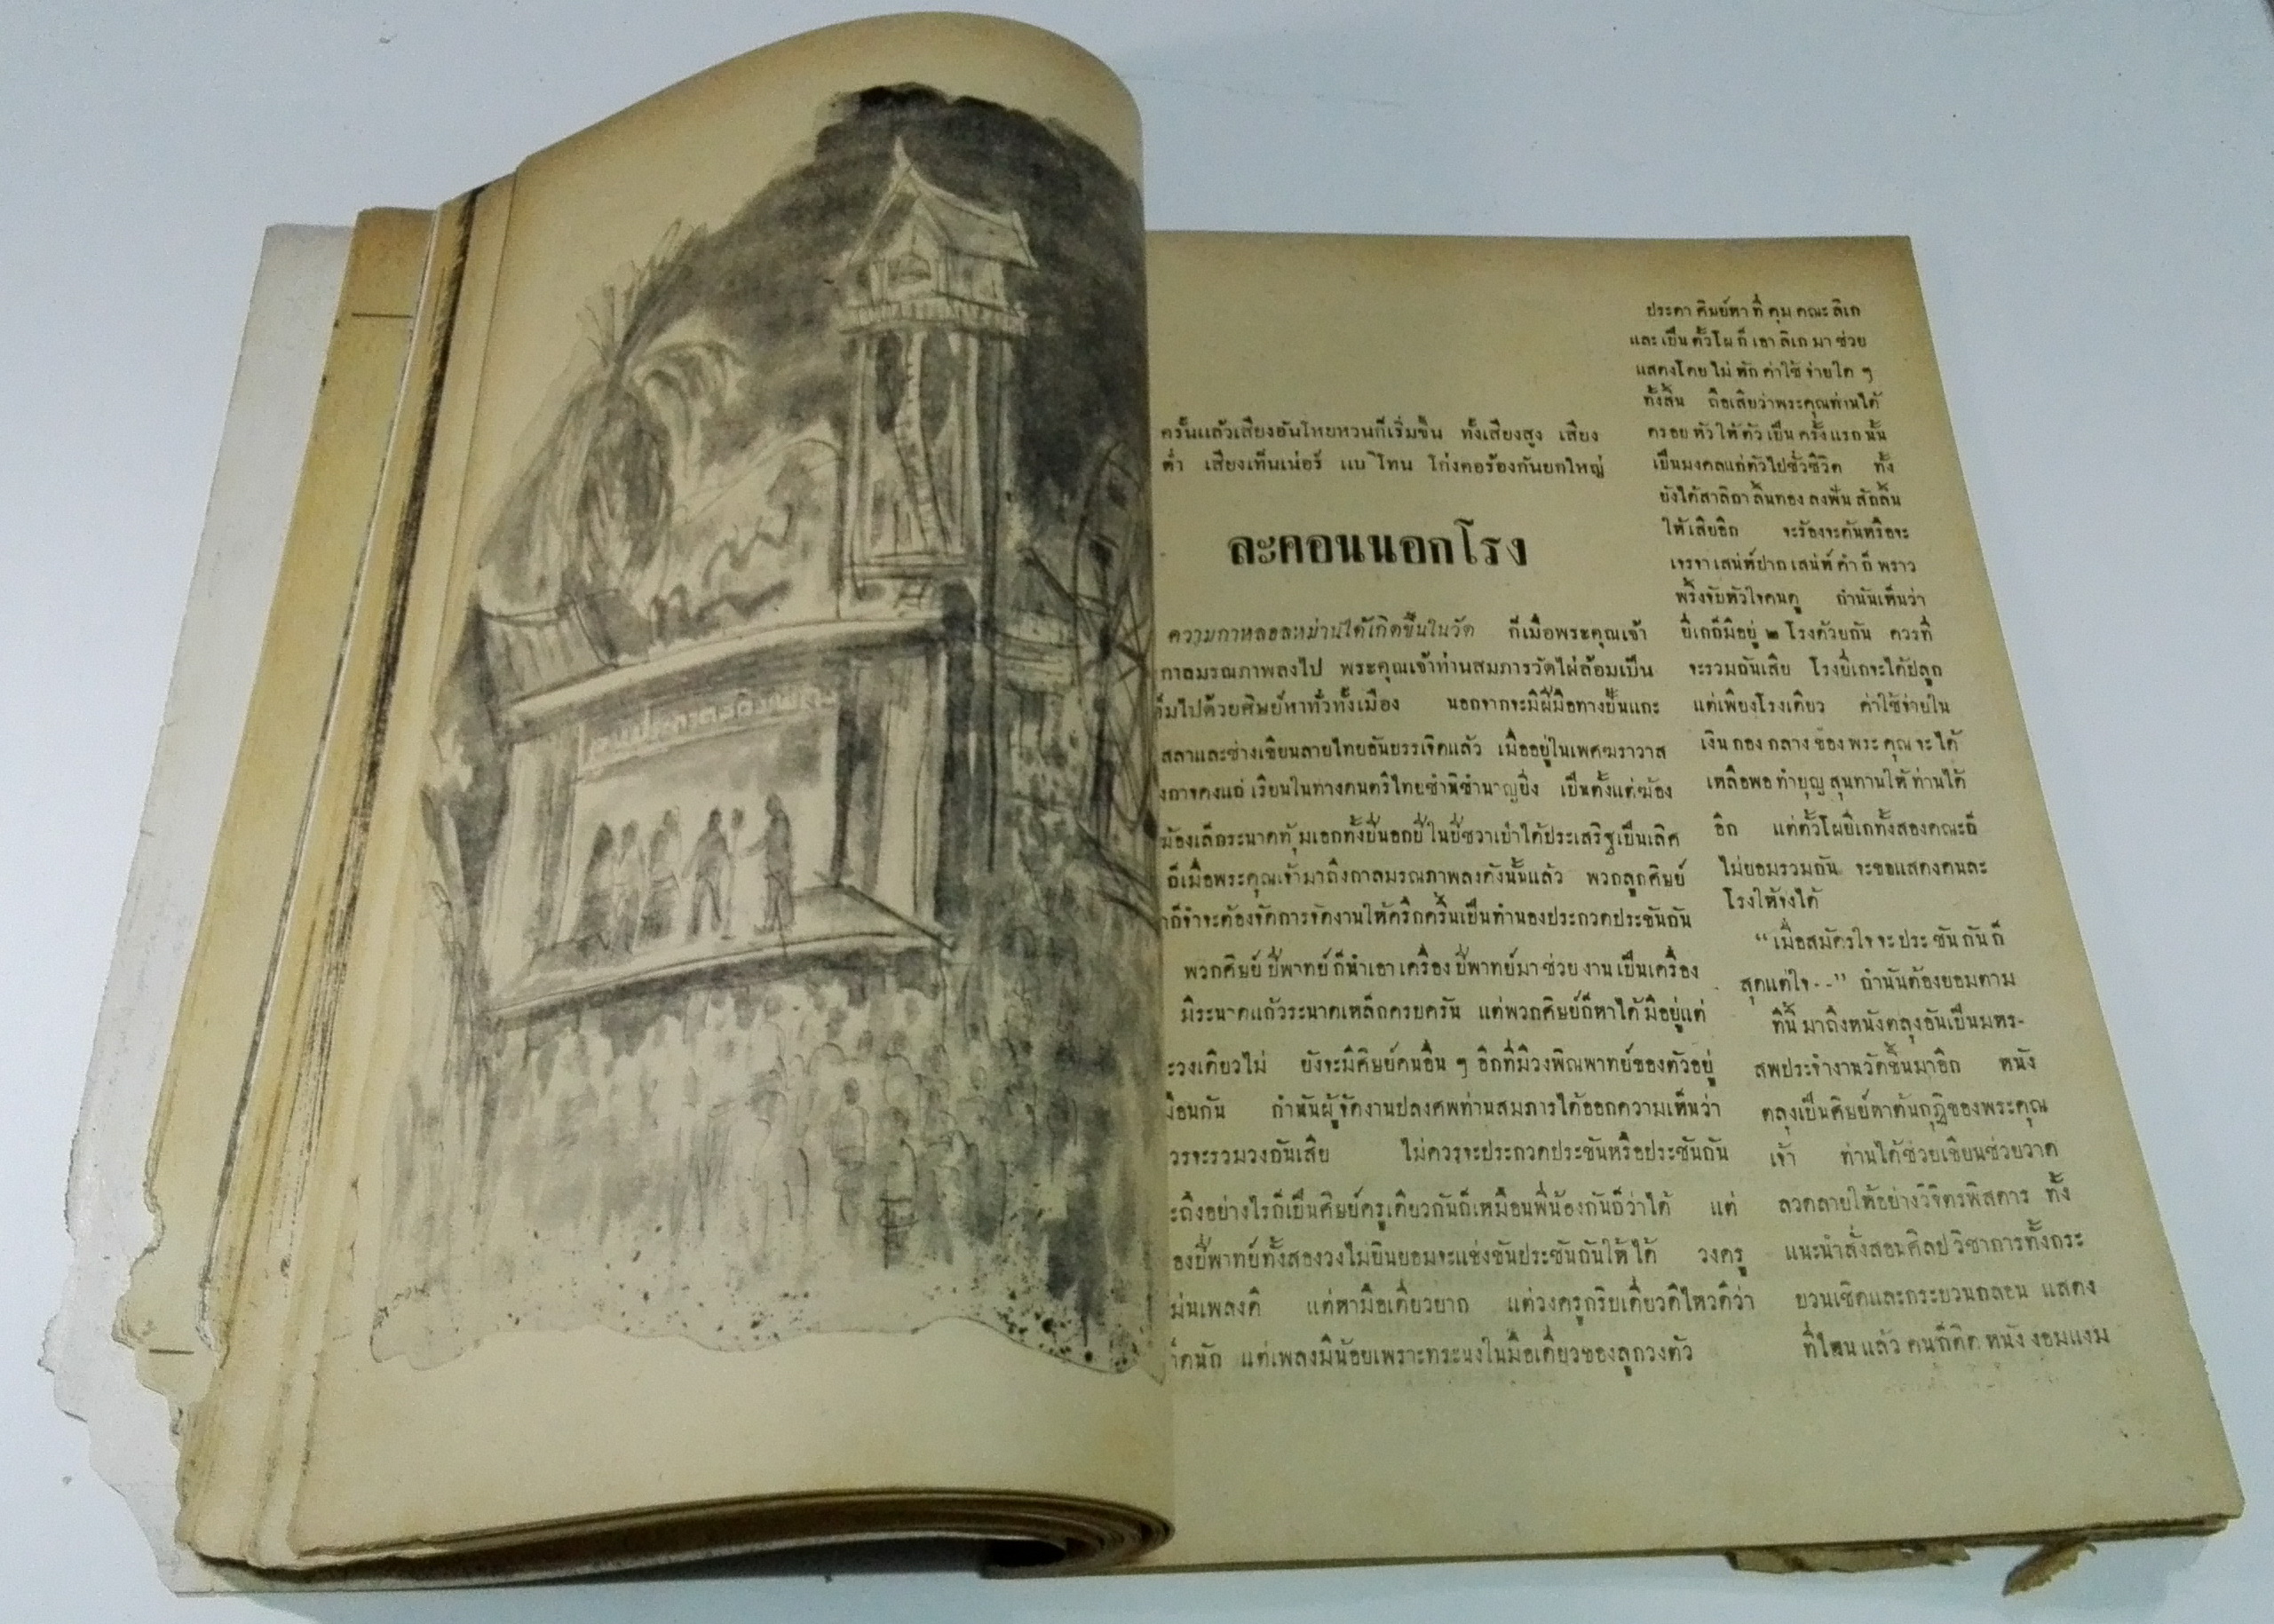 ครั้นแล้วเสียงอันโหยหวนก็เริ่มขึ้น ทั้งเสียงสูง เสียง
ต่ำ เสียงเท็นเน่อร์ แบริโทน โก่งคอร้องกันยกใหญ่
ละคอนนอกโรง
ความกาหลอลหม่านได้เกิดขึ้นในวัด ก็เมื่อพระคุณเจ้า
กาลมรณภาพลงไป พระคุณเจ้าท่านสมภารวัดไผ่ล้อมเป็น
ไปด้วยศิษย์หาทั่วทั้งเมือง นอกจากจะมีฝีมือทางปั้นแกะ
สลาและช่างเขียนลายไทยอันบรรเจิดแล้ว เมื่ออยู่ในเพศฆราวาส
เรียนในทางดนตรีไทยชำนิชำนาญยิ่ง เป็นตั้งแต่ฆ้อง
ฆ้องเล็กระนาดทุ้มเอกทั้งปี่นอกปี่ในปี่ชวาเป่าได้ประเสริฐเป็นเลิศ
ก็เมื่อพระคุณเจ้ามาถึงกาลมรณภาพลงดังนั้นแล้ว พวกลูกศิษย์
ก็จำจะต้องจัดการจัดงานให้ครึกครื้นเป็นทำนองประกวดประชันกัน
พวกศิษย์ปี่พาทย์ก็นำเอาเครื่องปี่พาทย์มาช่วยงานเป็นเครื่อง
มีระนาดแก้วระนาดเหล็กครบครัน แต่พวกศิษย์ก็หาได้มีอยู่แต่
วงเดียวไม่ ยังจะมีศิษย์คนอื่น ๆ อีกที่มีวงพิณพาทย์ของตัวอยู่
กำนันผู้จัดงานปลงศพท่านสมภารได้ออกความเห็นว่า
จะรวมวงกันเสีย ไม่ควรจะประกวดประชันหรือประชันกัน
ถึงอย่างไรก็เป็นศิษย์ครูเดียวกันก็เหมือนพี่น้องกันก็ว่าได้ แต่
ปี่พาทย์ทั้งสองวงไม่ยินยอมจะแข่งขันประชันกันให้ได้ วงครู
แม่นเพลงดี แต่หามือเดี่ยวยาก แต่วงครูกริบเดี่ยวดีไหวดีว่า
นัก แต่เพลงมีน้อยเพราะทระนงในมือเดี่ยวของลูกวงตัว
ประดาศิษย์หาที่คุมคณะลิเก
และเป็นตั้วโผก็เอาลิเกมาช่วย
แสดงโดยไม่หักค่าใช้จ่ายใด ๆ
ทั้งสิ้น ถือเสียว่าพระคุณท่านได้
ครอบหัวให้ตัวเป็นครั้งแรกนั้น
เป็นมงคลแก่ตัวไปชั่วชีวิต ทั้ง
ยังได้สาลิกาลิ้นทองลงฟันสักลิ้น
ให้เสียอีก จะร้องจะด้นหรือจะ
เจรจาเสน่ห์ปากเสน่ห์คำก็พราว
พริ้งจับหัวใจคนดู กำนันเห็นว่า
ยี่เกก็มีอยู่ ๒ โรงด้วยกัน ควรที่
จะรวมกันเสีย โรงยี่เกจะได้ปลูก
แต่เพียงโรงเดียว ค่าใช้จ่ายใน
เงินกองกลางของพระคุณจะได้
เหลือพอทำบุญสุนทานให้ท่านได้
อีก แต่ตั้วโผยี่เกทั้งสองคณะก็
ไม่ยอมรวมกัน จะขอแสดงคนละ
โรงให้จงได้
“เมื่อสมัครใจจะประชันกันก็
สุดแต่ใจ--” กำนันต้องยอมตาม
ทีนี้มาถึงหนังตลุงอันเป็นมหร-
สพประจำงานวัดขึ้นมาอีก หนัง
ตลุงเป็นศิษย์หาต้นกุฏิของพระคุณ
เจ้า ท่านได้ช่วยเขียนช่วยวาด
ลวดลายให้อย่างวิจิตรพิสดาร ทั้ง
แนะนำสั่งสอนศิลปวิชาการทั้งกระ
บวนเชิดและกระบวนกลอน แสดง
ที่ไหนแล้วคนก็ติดหนังงอมแงม